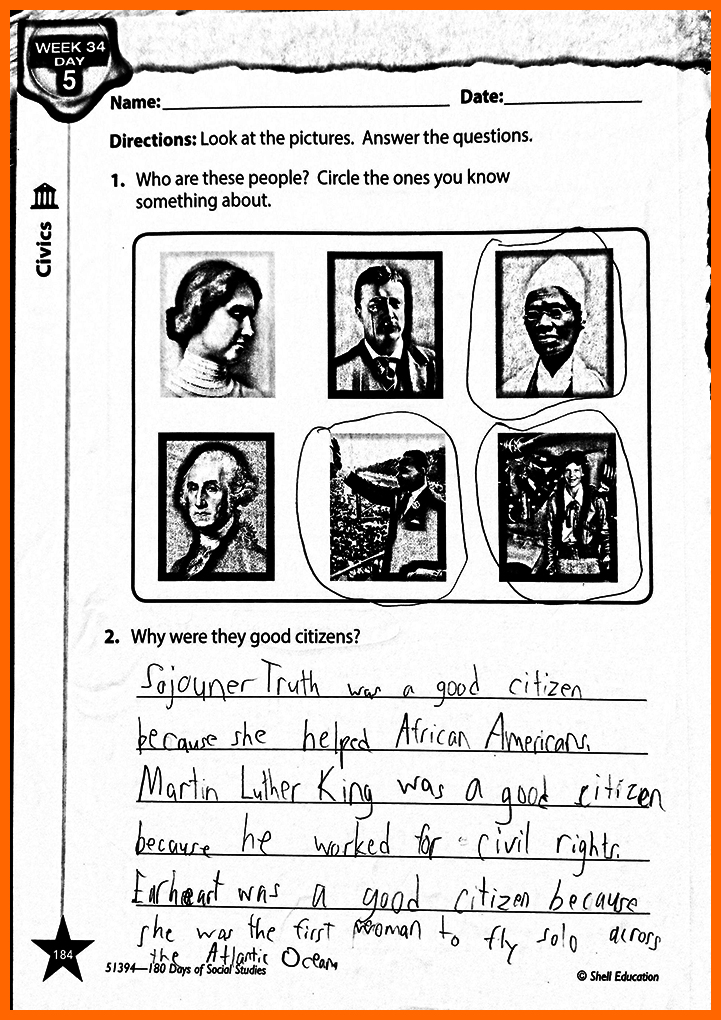 WEEK 34
DAY
5
Name: Date:
Directions: Look at the pictures. Answer the questions.
1. Who are these people? Circle the ones you know
something about.
Civics
2. Why were they good citizens?
Sojouner Truth was a good citizen
because she helped African Americans.
Martin Luther King was a good citizen
because he worked for civil rights.
Earheart was a good citizen because
she was the first woman to fly solo across
the Atlantic Ocean
184
51394—180 Days of Social Studies
© Shell Education